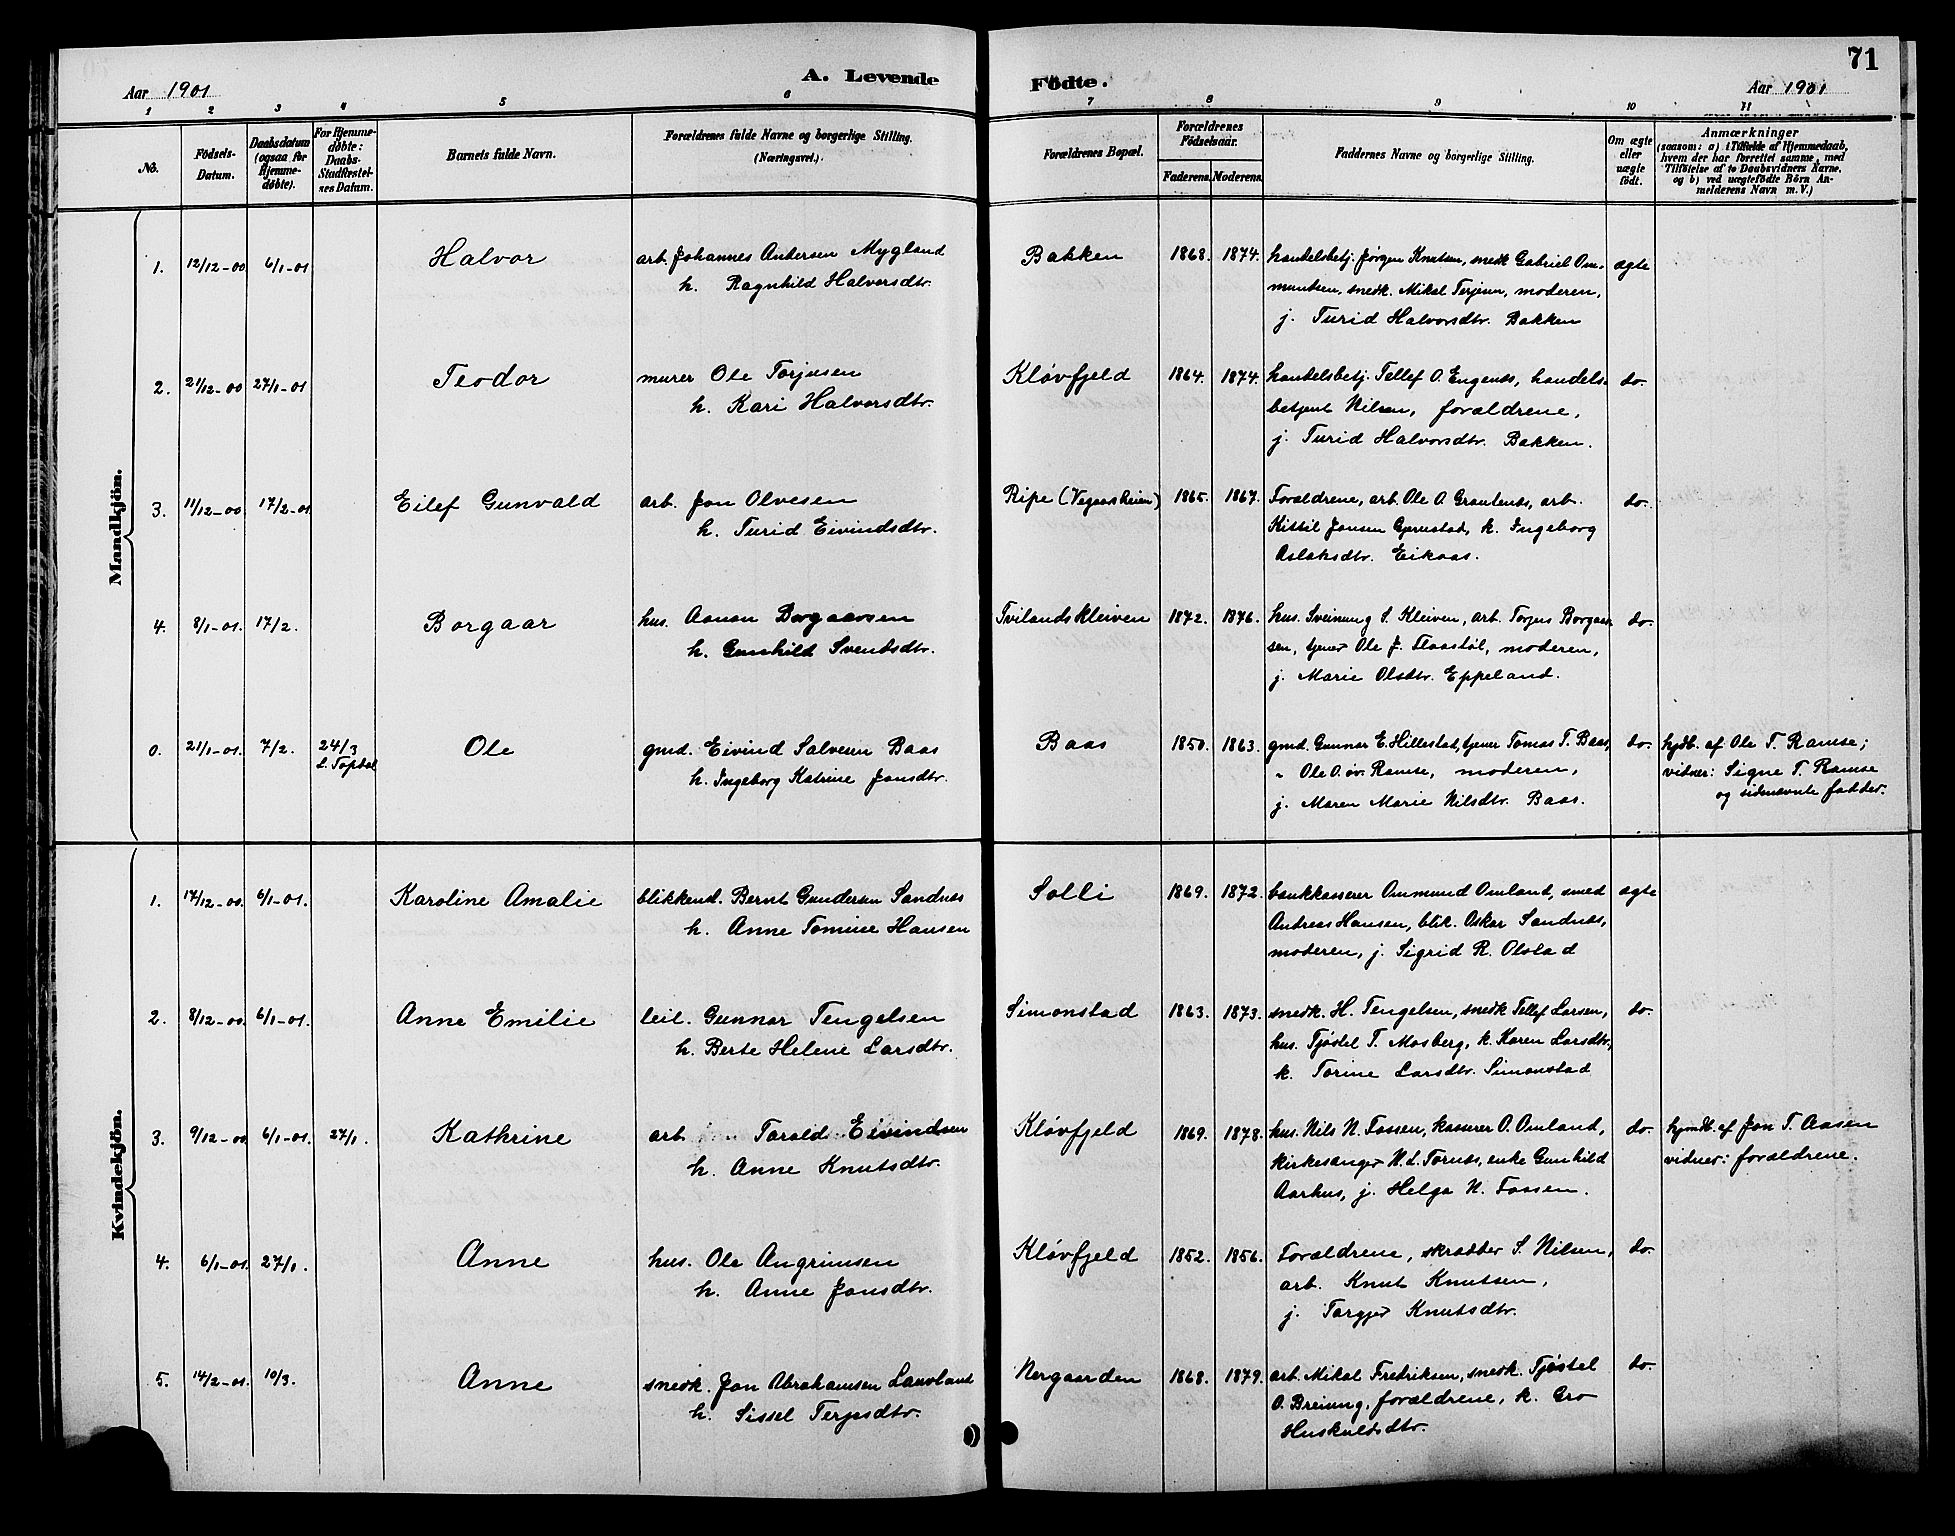 71
Aar 1901
A. Levende
Födte.
Aar 1901
1 2 3 4 5 6 7 8 9 10 11
No.
Födsels-
Datum.
Daabsdatum
(ogsaa for
Hjemme-
døbte).
For Hjemme-
døbte:
Daabs-
Stadfæstel-
ses Datum.
Barnets fulde Navn.
Forældrenes fulde Navne og borgerlige Stilling.
(Næringsvei.)
Forældrenes Bopæl.
Forældrenes
Födselsaar.
Faderens. Moderens.
Faddernes Navne og borgerlige Stilling.
Om ægte
eller
uægte
födt.
Anmærkninger
(saasom: a) i Tilfælde af Hjemmedaab,
hvem der har forrettet samme, med
Tilføielse af to Daabsvidners Navne,
og b) ved uægtefødte Börn An-
melderens Navn m. V.)
Mandkjön.
1. 12/12-00 6/1-01 Halvor arb. Johannes Andersen Mygland Bakken 1868. 1874. handelsbetj. Jørgen Knutsen, snedk Gabriel Om- ægte
h. Ragnhild Halvorsdtr. mundsen, snedk. Mikal Terjesen, moderen,
j. Turid Halvorsdtr. Bakken
2. 21/12-00 27/1-01 Teodor murer Ole Torjusen Kløvfjeld 1864. 1874. handelsbetj. Tellef O. Engenes, handels- do.
h. Kari Halvorsdtr. betjent Nilsen, forældrene,
j. Turid Halvorsdtr. Bakken.
3. 11/12-00 17/2-01 Eilef Gunvald arb. Jon Olvesen Ripe (Vegaarsheien) 1865. 1867. Forældrene, arb. Ole O. Granlends, arb. do.
h. Turid Eivindsdtr. Kittil Jonsen Gjerustad, k. Ingeborg
Aslaksdtr. Eikaas.
4. 8/1-01. 17/2. Borgaar hus. Aanon Borgaarsen Tvilandskleiven 1872. 1876. hus. Sveinung S. Kleiven, arb. Torjus Borgaar- do.
h. Gunhild Sventsdtr. sen, tjener Ole J. Flaastøl, moderen,
j. Marie Olsdtr. Eppeland.
0. 21/1-01. 7/2. 24/3 Ole gmd. Eivind Salvesen Baas Baas 1850. 1863. gmd. Gunnar E. Hillestad, tjener Tomas T. Baas, do. hjdb. af Ole T. Ramse;
h. Ingeborg Katrine Jonsdtr. " Ole O. øv. Ramse, moderen, vidner: Signe T. Ramse
j. Maren Marie Nilsdtr. Baas. og sidnevnte fadder.
Kvindekjön.
1. 14/12-00. 6/1-01. Karoline Amalie blikkensl. Bernt Gundersen Sandnes Solli 1869. 1872. bankkasserer Ommund Omland, smed ægte
h. Anne Tomine Hansen Andreas Hansen, blik. Oskar Sandnes,
moderen, j. Sigrid R. Olstad
2. 8/12-00. 6/1-01. Anne Emilie leil. Gunnar Tengelsen Simonstad 1863. 1873. snedk. H. Tengelsen, snedk Tellef Larsen, do.
h. Berte Helene Larsdtr. hus. Tjøstel T. Mosberg, k. Karen Larsdtr,
k. Torine Larsdtr. Simonstad
3. 9/12-00 6/1-01. 27/1. Kathrine arb Torald Eivindsen Kløvfjeld 1869. 1878. hus. Nils N. Fossen, kasserer O. Omland, do. hjmdb. af Jon T. Aasen
h. Anne Knutsdtr. kirkesanger N. L. Tornes, enke Gunhild vidner: forældrene.
Aarhus, j. Helga N. Fossen.
4. 6/1-01. 27/1. Anne hus. Ole Angrimsen Kløvfjeld 1852. 1856. Forældrene, skrædder S. Nilsen, do.
h. Anne Jonsdtr. arb. Knut Knutsen,
j. Torgjer Knutsdtr.
5. 14/2-01. 10/3. Anne snedk. Jon Abrahamsen Lauvland Nergaarden 1868. 1879. arb. Mikal Fredriksen, snedk. Tjøstel do.
h. Sissel Terjesdtr. O. Breiung, forældrene, k. Gro
Huskuldsdtr.